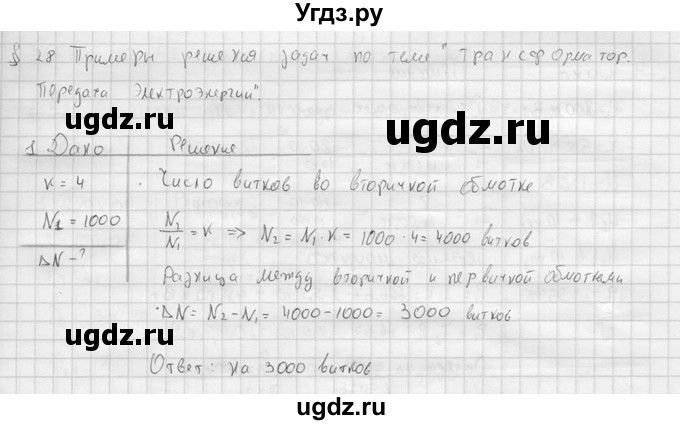 Угдз.ру
§ 28 Примеры решения задач по теме "Трансформатор.
Передача электроэнергии".
ugdz.ru
ugdz.ru
1 Дано Решение
K = 4
N1 = 1000
ΔN - ?
Число витков во вторичной обмотке
N2/N1 = K => N2 = N1 · K = 1000 · 4 = 4000 витков
Разница между вторичной и первичной обмотками
ΔN = N2 - N1 = 4000 - 1000 = 3000 витков
ugdz.ru
ugdz.ru
Ответ: на 3000 витков
ugdz.ru